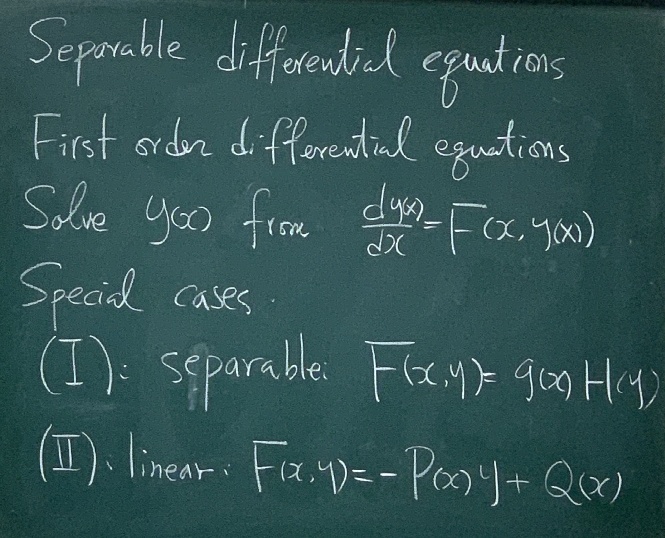 Separable differential equations
First order differential equations
Solve y(x) from dy(x)/dx = F(x, y(x))
Special cases.
(I): separable: F(x,y) = g(x) H(y)
(II): linear: F(x,y) = -P(x) y + Q(x)